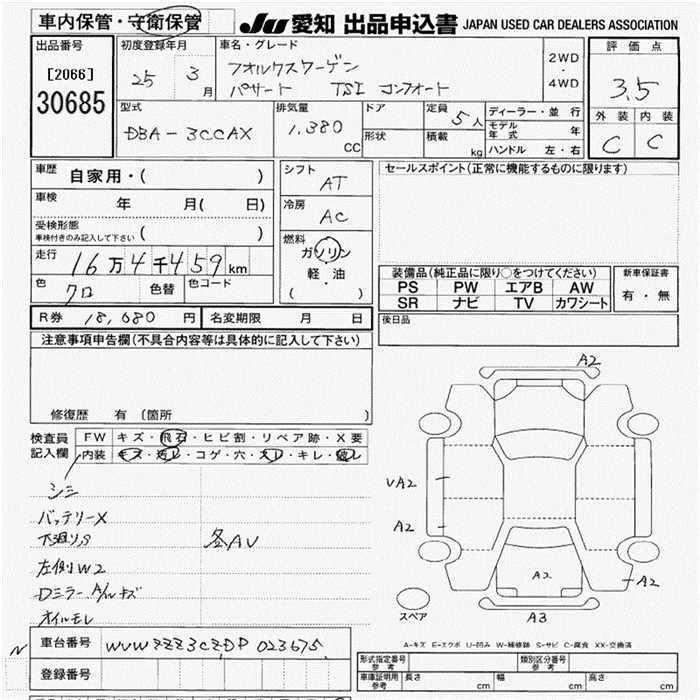 車内保管・守衛保管
JU 愛知 出品申込書 JAPAN USED CAR DEALERS ASSOCIATION
出品番号
[2066]
30685
初度登録年月
25 3 月
車名・グレード
フォルクスワーゲン
パサート TSI コンフォート
2WD
・
4WD
評価点
3.5
外装 内装
C C
型式
DBA-3CCAX
排気量
1,380 CC
ドア
形状
定員 5人
積載 kg
ディーラー・並行
モデル年式 年
ハンドル 左・右
車歴 自家用・( )
車検 年 月( 日)
受検形態
車検付きのみ記入して下さい ( )
走行 16万4千459km
色 クロ 色替 色コード
R券 18,080円 名変期限 月 日
シフト
AT
冷房
AC
燃料
ガソリン
軽・油
( )
セールスポイント(正常に機能するものに限ります)
装備品(純正品に限り○をつけてください)
PS PW エアB AW
SR ナビ TV カワシート
新車保証書
有・無
後日品
注意事項申告欄(不具合内容等は具体的に記入して下さい)
修復歴 有 (箇所 )
検査員記入欄
FW キズ・飛石・ヒビ割・リペア跡・X要
内装 キズ・汚レ・コゲ・穴・スレ・キレ・破レ
シミ
バッテリーX
下廻りS
各AU
左右側W2
Dミラー、A/Wキズ
オイルモレ
A2
UA2
A2
A2
A2
A3
スペア
A-キズ E-エクボ U-凹み W-補修跡 S-サビ C-腐食 XX-交換済
N
車台番号 WVWZZZ3CZDP023675
登録番号
形式指定番号
参考
類別区分番号
参考
車庫証明用
参考
長さ cm 幅 cm 高さ cm